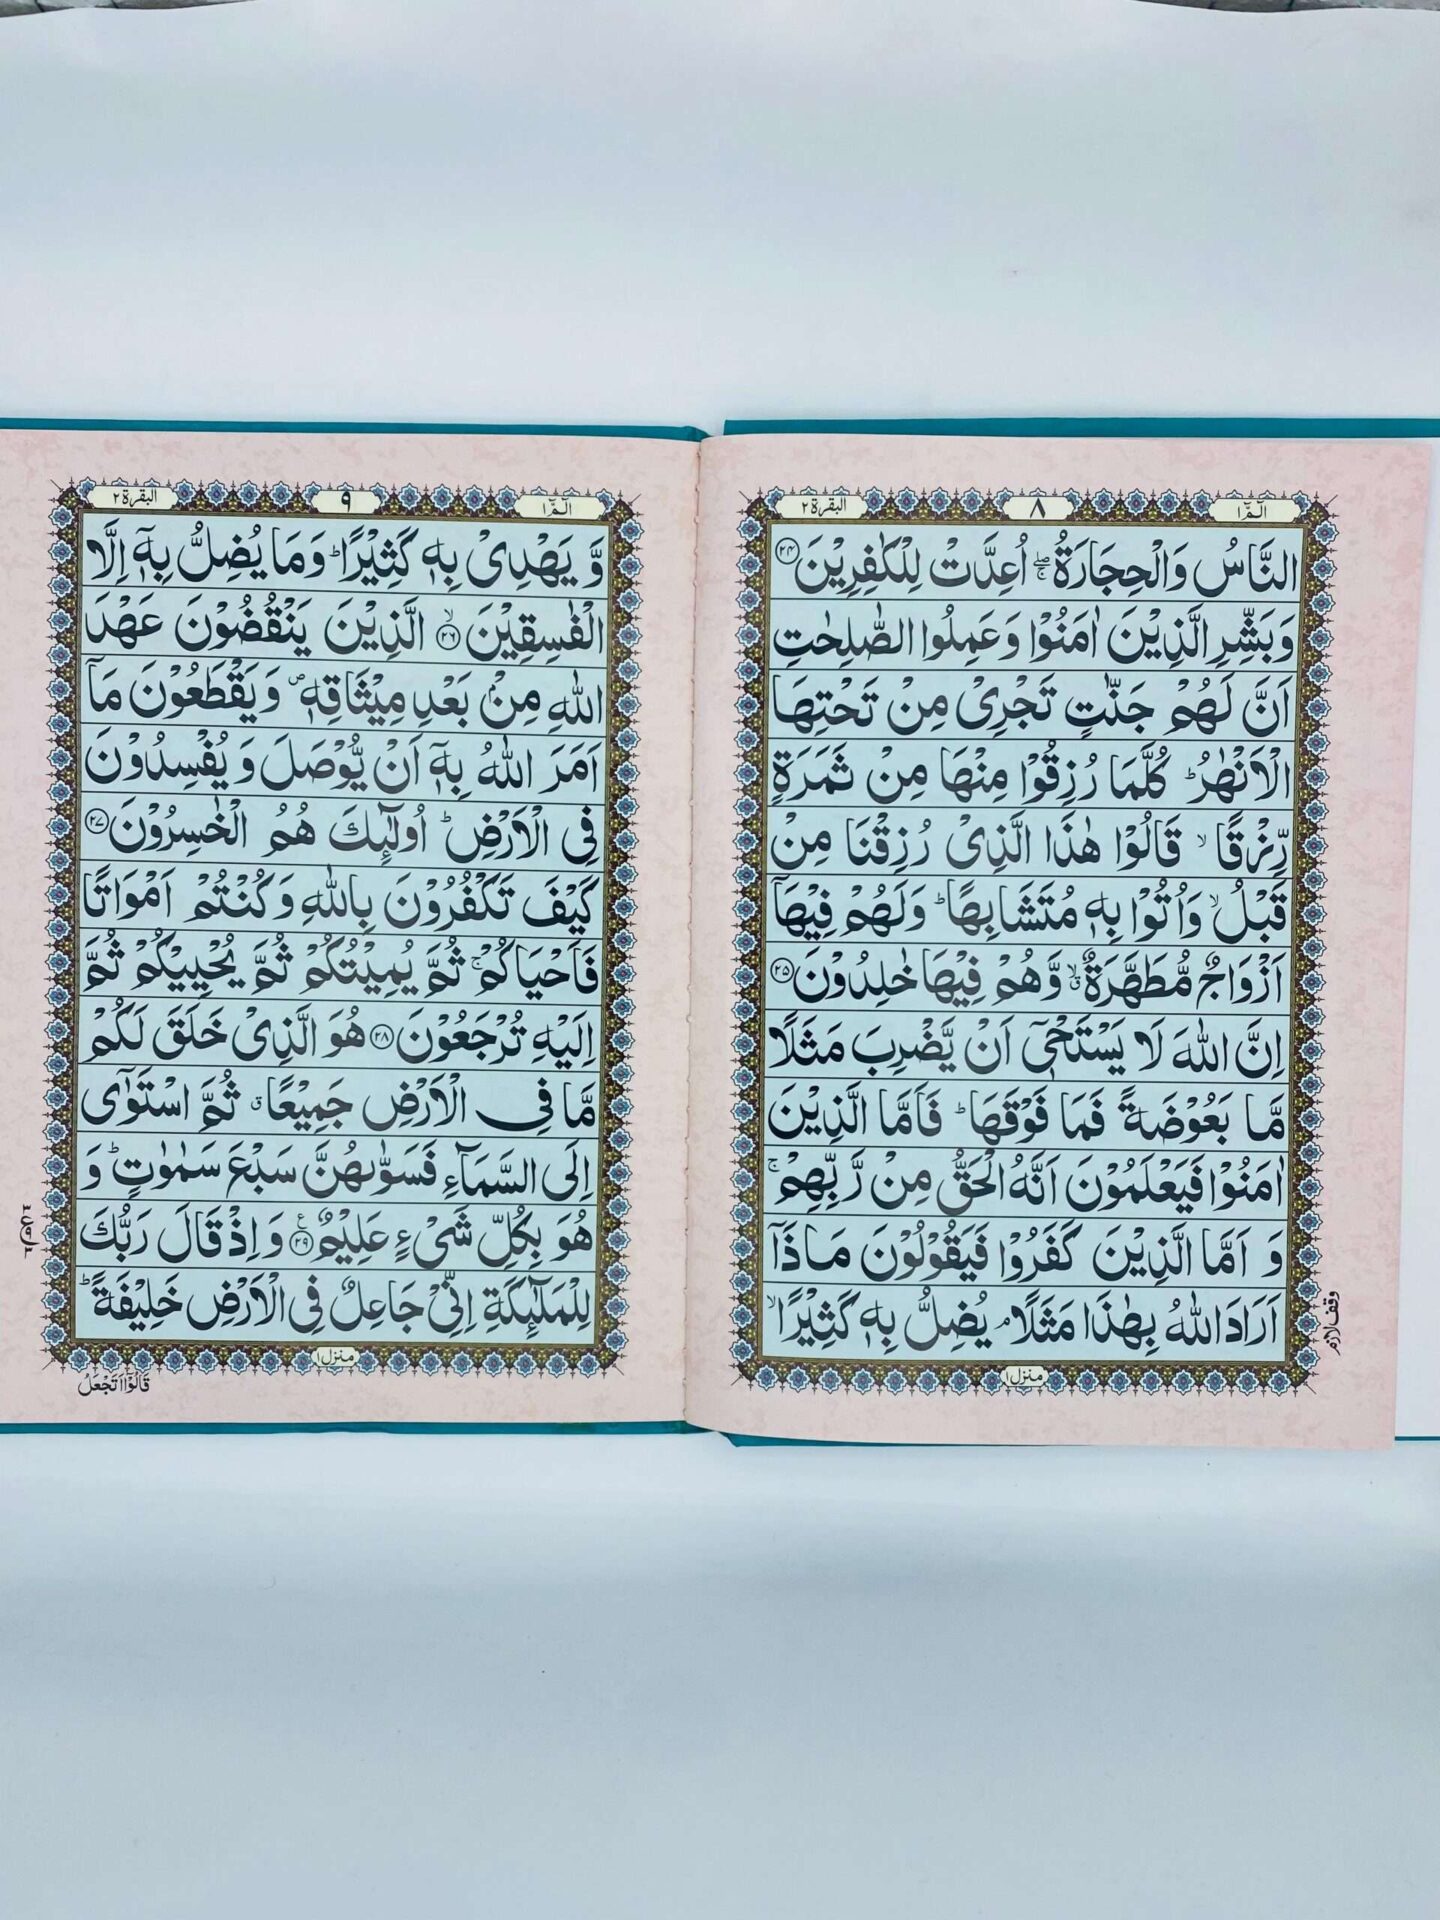 الٓمّٓ ١
٨
البقرة ٢
النَّاسُ وَالْحِجَارَةُ ۖۚ اُعِدَّتْ لِلْكٰفِرِيْنَ ﴿۲۴﴾
وَبَشِّرِ الَّذِيْنَ اٰمَنُوْا وَعَمِلُوا الصّٰلِحٰتِ
اَنَّ لَهُمْ جَنّٰتٍ تَجْرِيْ مِنْ تَحْتِهَا
الْاَنْهٰرُ ؕ كُلَّمَا رُزِقُوْا مِنْهَا مِنْ ثَمَرَةٍ
رِّزْقًا ۙ قَالُوْا هٰذَا الَّذِيْ رُزِقْنَا مِنْ
قَبْلُ ۙ وَاُتُوْا بِهٖ مُتَشَابِهًا ؕ وَلَهُمْ فِيْهَاۤ
اَزْوَاجٌ مُّطَهَّرَةٌ ۙۗ وَّهُمْ فِيْهَا خٰلِدُوْنَ ﴿۲۵﴾
اِنَّ اللّٰهَ لَا يَسْتَحْيٖۤ اَنْ يَّضْرِبَ مَثَلًا
مَّا بَعُوْضَةً فَمَا فَوْقَهَا ؕ فَاَمَّا الَّذِيْنَ
اٰمَنُوْا فَيَعْلَمُوْنَ اَنَّهُ الْحَقُّ مِنْ رَّبِّهِمْ ۚ
وَ اَمَّا الَّذِيْنَ كَفَرُوْا فَيَقُوْلُوْنَ مَاذَاۤ
اَرَادَ اللّٰهُ بِهٰذَا مَثَلًا ۘ يُضِلُّ بِهٖ كَثِيْرًا ۙ
وقف لازم
منزل ١
الٓمّٓ ١
٩
البقرة ٢
وَّ يَهْدِيْ بِهٖ كَثِيْرًا ؕ وَمَا يُضِلُّ بِهٖۤ اِلَّا
الْفٰسِقِيْنَ ﴿۲۶﴾ ۙ الَّذِيْنَ يَنْقُضُوْنَ عَهْدَ
اللّٰهِ مِنْۢ بَعْدِ مِيْثَاقِهٖ ۪ وَيَقْطَعُوْنَ مَاۤ
اَمَرَ اللّٰهُ بِهٖۤ اَنْ يُّوْصَلَ وَيُفْسِدُوْنَ
فِي الْاَرْضِ ؕ اُولٰٓئِكَ هُمُ الْخٰسِرُوْنَ ﴿۲۷﴾
كَيْفَ تَكْفُرُوْنَ بِاللّٰهِ وَكُنْتُمْ اَمْوَاتًا
فَاَحْيَاكُمْ ۚ ثُمَّ يُمِيْتُكُمْ ثُمَّ يُحْيِيْكُمْ ثُمَّ
اِلَيْهِ تُرْجَعُوْنَ ﴿۲۸﴾ هُوَ الَّذِيْ خَلَقَ لَكُمْ
مَّا فِي الْاَرْضِ جَمِيْعًا ۗ ثُمَّ اسْتَوٰۤى
اِلَى السَّمَآءِ فَسَوّٰىهُنَّ سَبْعَ سَمٰوٰتٍ ؕ وَ
هُوَ بِكُلِّ شَيْءٍ عَلِيْمٌ ﴿۲۹﴾ وَ اِذْ قَالَ رَبُّكَ
لِلْمَلٰٓئِكَةِ اِنِّيْ جَاعِلٌ فِي الْاَرْضِ خَلِيْفَةً ؕ
منزل ١
قَالُوْۤا اَتَجْعَلُ